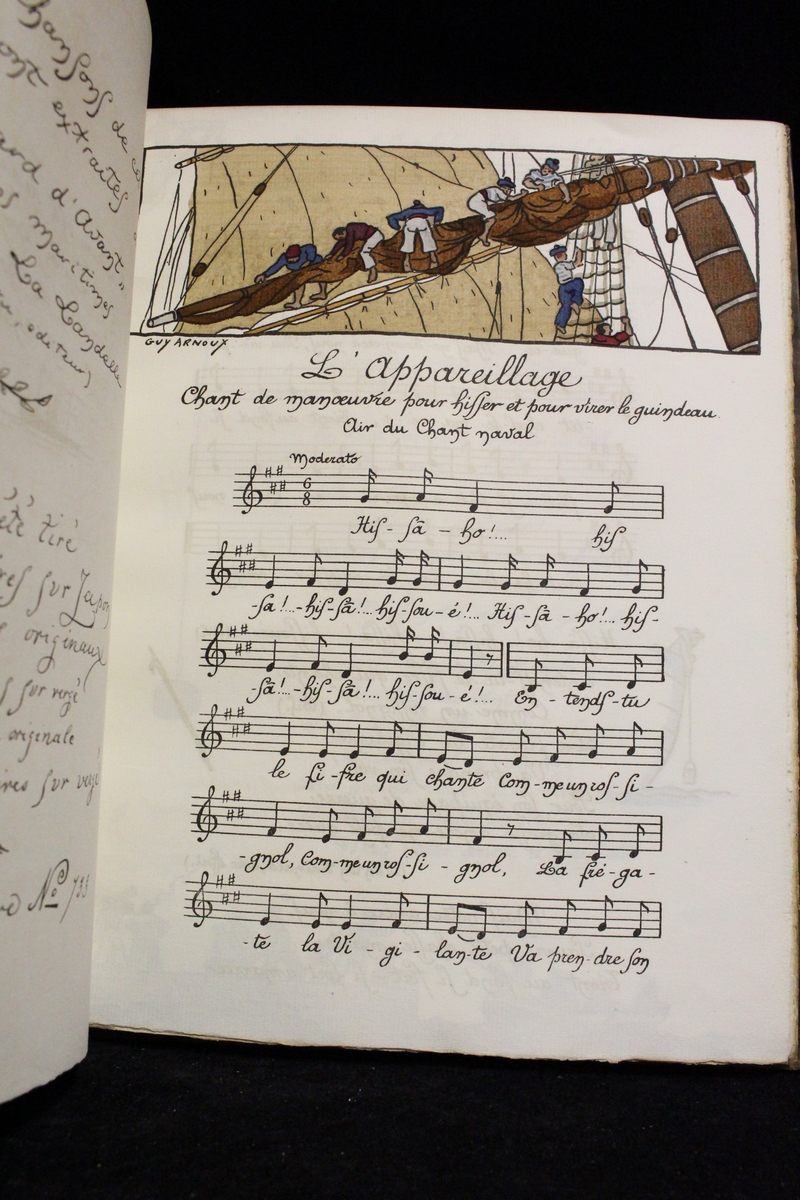 chansons de
ont extraites
ard d'Avant"
es maritimes
La Landelle
editeur)
été tiré
res sur Japon
originaux
sur vergé
originale
ires sur vergé
No 733
GUY ARNOUX
L'Appareillage
Chant de manœuvre pour hisser et pour virer le guindeau
Air du Chant naval
Moderato
6
8
His - sa - ho!... his
-sa!...-his-sa!... his-sou-é!... His-sa - ho!... his-
-sa!...-his-sa!... his-sou-é!... En - tends-tu
le fi-fre qui chante Com-me un ros-si-
-gnol, Com-me un ros-si - gnol, La fré-ga-
-te la Vi - gi - lan-te Va pren-dre son